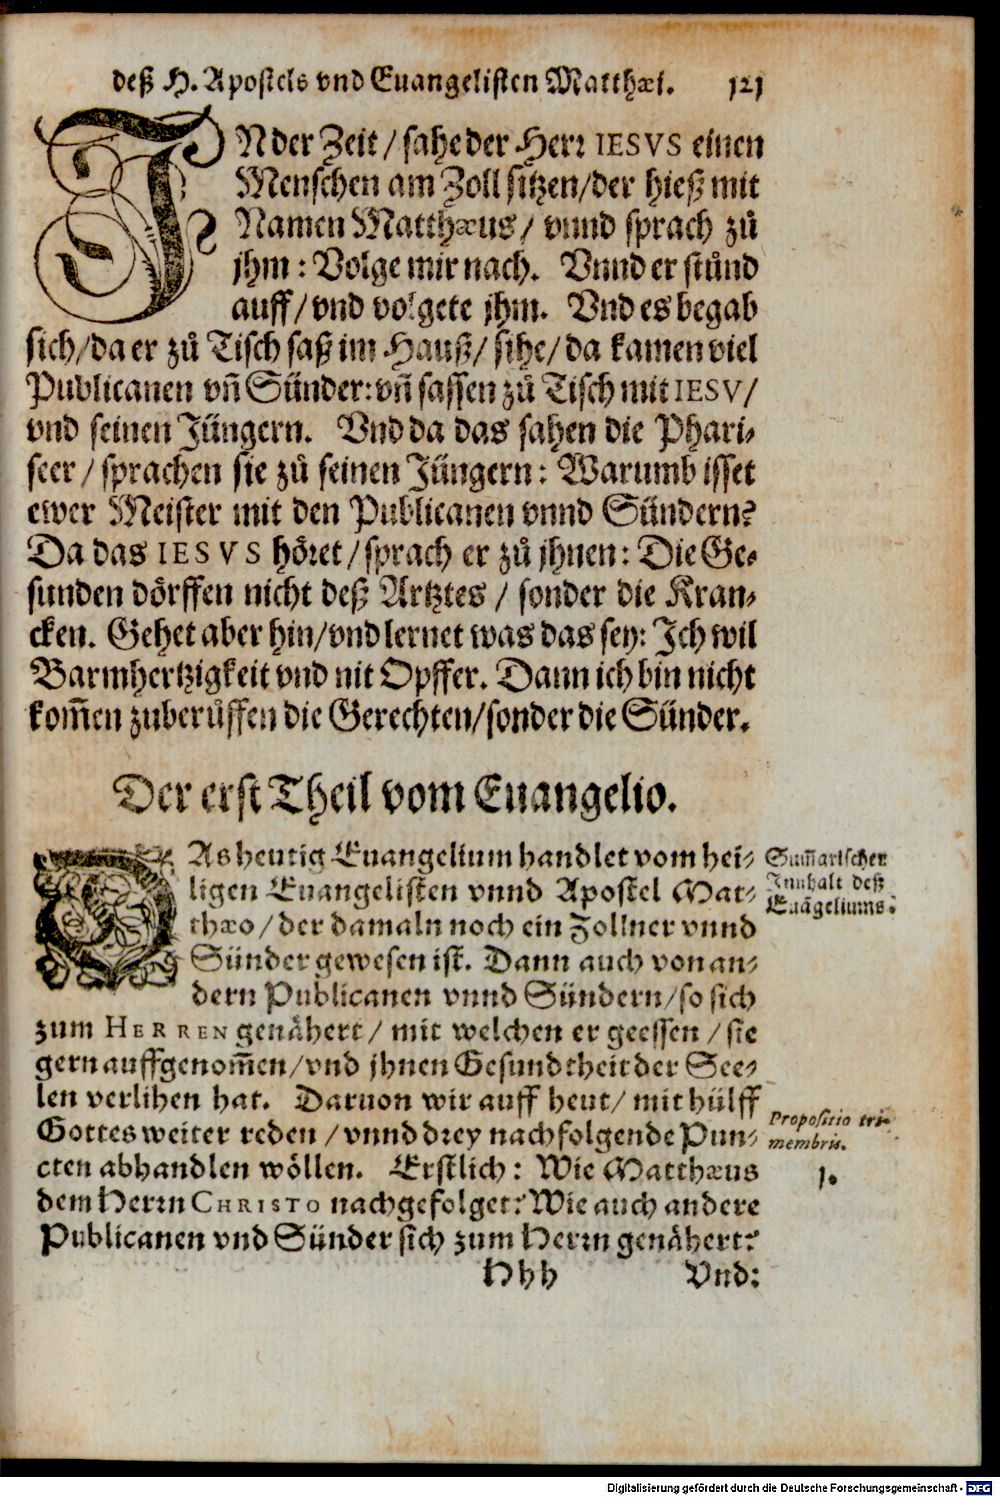 deß H. Apostels vnd Euangelisten Matthæi. 121
IN der Zeit / sahe der Herꝛ IESVS einen
Menschen am Zoll sitzen/der hieß mit
Namen Matthæus / vnnd sprach zů
jhm : Volge mir nach. Vnnd er stůnd
auff/vnd volgete jhm. Vnd es begab
sich/da er zů Tisch saß im Hauß/ sihe/da kamen viel
Publicanen vñ Sünder: vñ sassen zů Tisch mit IESV/
vnd seinen Jüngern. Vnd da das sahen die Phari-
seer / sprachen sie zů seinen Jüngern : Warumb isset
ewer Meister mit den Publicanen vnnd Sündern?
Da das IESVS höꝛet / sprach er zů jhnen : Die Ge-
sunden dörffen nicht deß Artztes / sonder die Kran-
cken. Gehet aber hin/vnd lernet was das sey: Ich wil
Barmhertzigkeit vnd nit Opffer. Dann ich bin nicht
kom̃en zuberůffen die Gerechten/sonder die Sünder.
Der erst Theil vom Euangelio.
DAs heutig Euangelium handlet vom hei-
ligen Euangelisten vnnd Apostel Mat-
thæo / der damaln noch ein Zollner vnnd
Sünder gewesen ist. Dann auch von an-
dern Publicanen vnnd Sündern/so sich
zum HERREN genähert / mit welchen er geessen / sie
gern auffgenom̃en/vnd jhnen Gesundtheit der See-
len verlihen hat. Daruon wir auff heut/ mit hülff
Gottes weiter reden / vnnd dꝛey nachfolgende Pun-
cten abhandlen wöllen. Erstlich : Wie Matthæus
dem Herꝛn CHRISTO nachgefolget? Wie auch andere
Publicanen vnd Sünder sich zum Herꝛn genähert?
Hhh Vnd:
Sum̃arischer
Innhalt deß
Euãgeliums.
Propositio tri-
membris.
1.
Digitalisierung gefördert durch die Deutsche Forschungsgemeinschaft - DFG